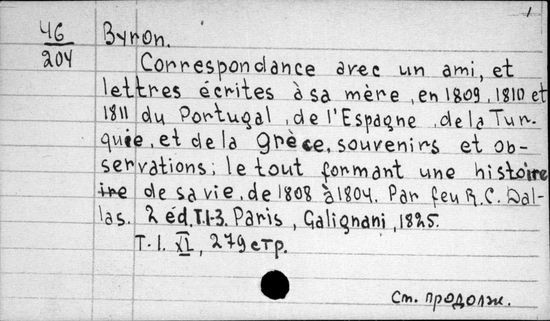 1
46
204
Byron.
Correspondance avec un ami, et
lettres écrites à sa mère, en 1809, 1810 et
1811 du Portugal, de l'Espagne, de la Tur-
quie, et de la Grèce, souvenirs et ob-
servations; le tout formant une histoire
ire de sa vie, de 1808 à 1804. Par feu R.C. Dal-
las. 2 éd. T.1-3. Paris, Galignani, 1825.
T.1. XI, 279 стр.
См. продолж.